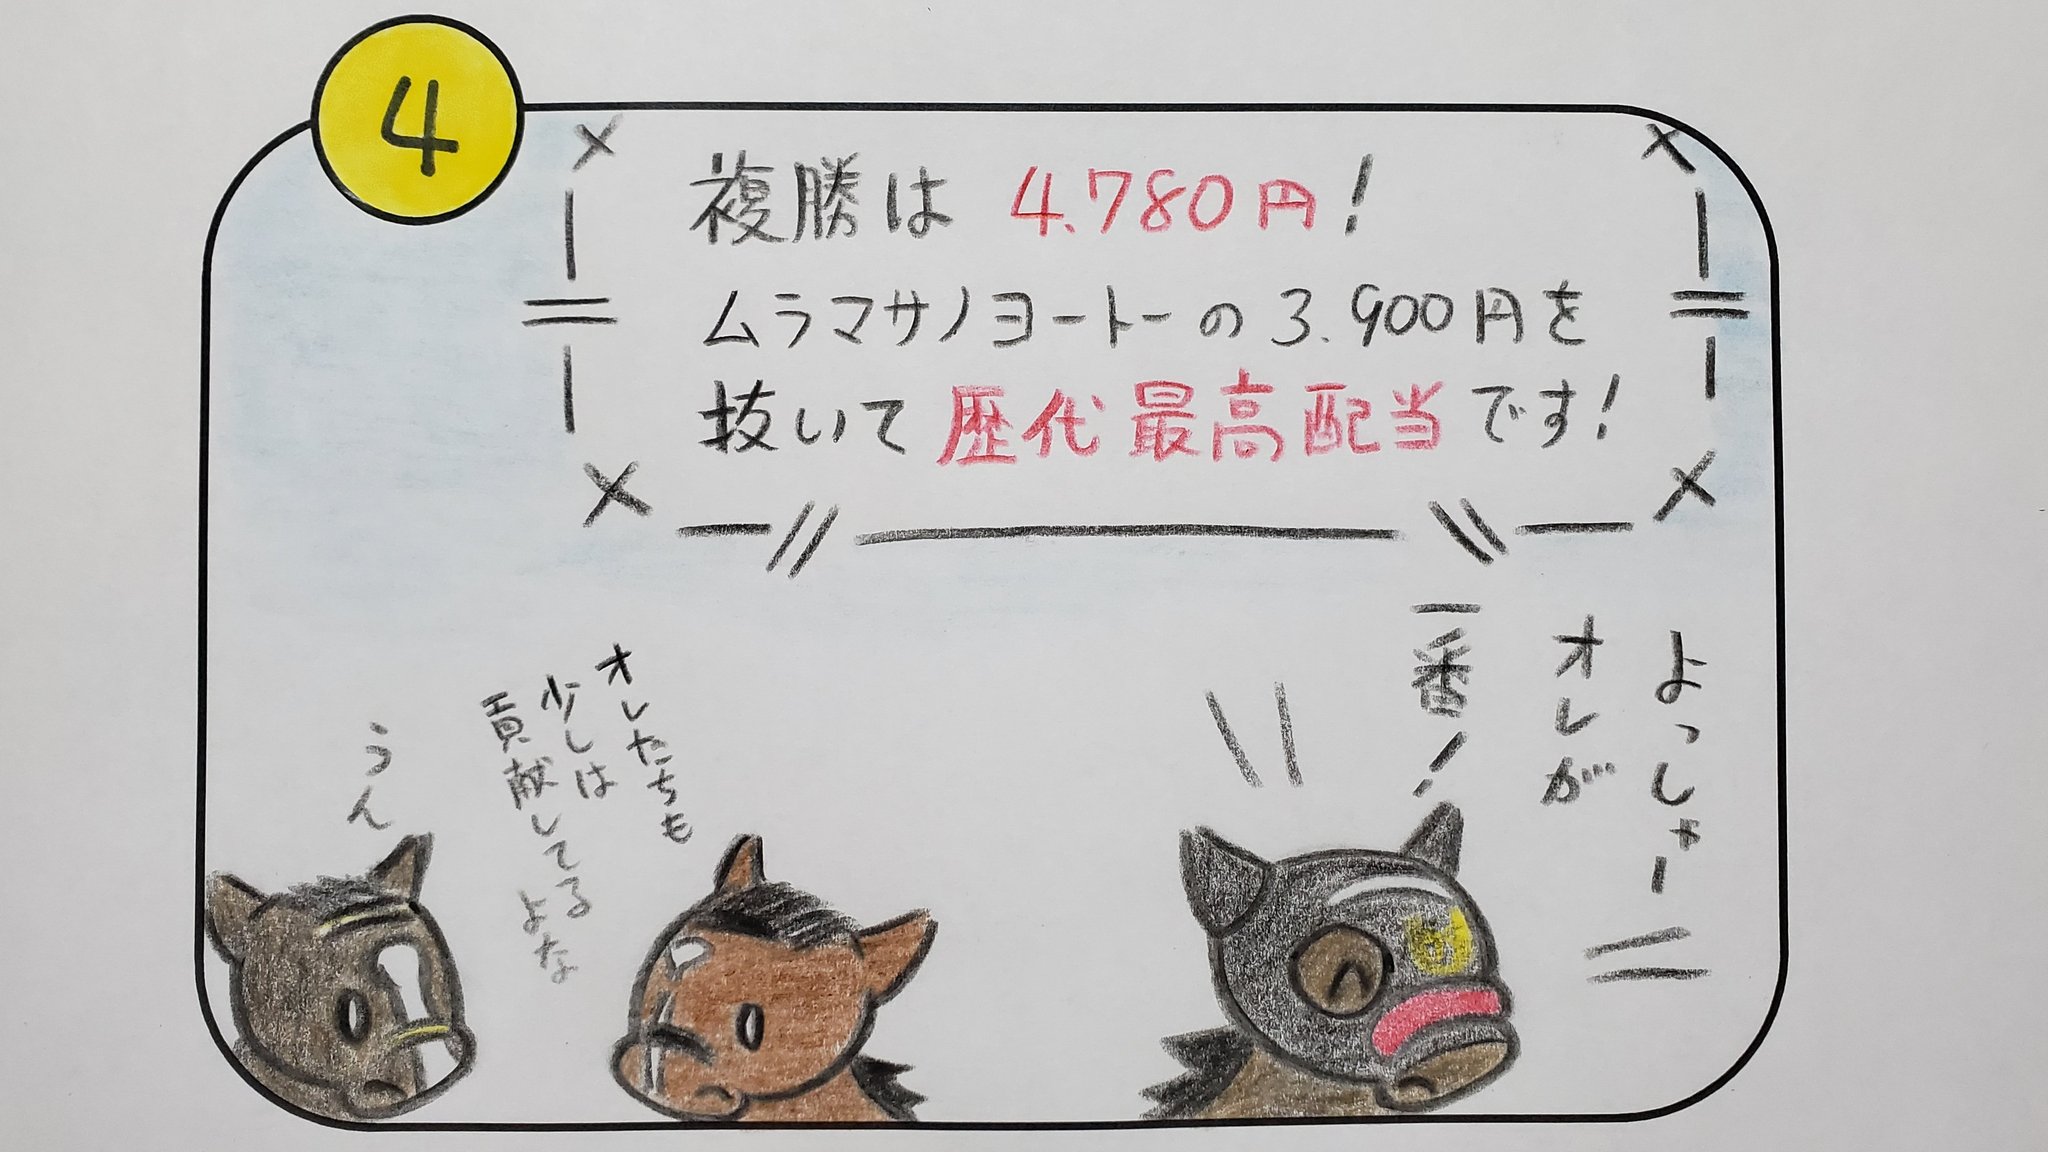 4
複勝は4.780円!
ムラマサノヨートーの3.900円を
抜いて歴代最高配当です!
よっしゃー
オレが
一番!
オレたちも
少しは
貢献してる
よな
うん